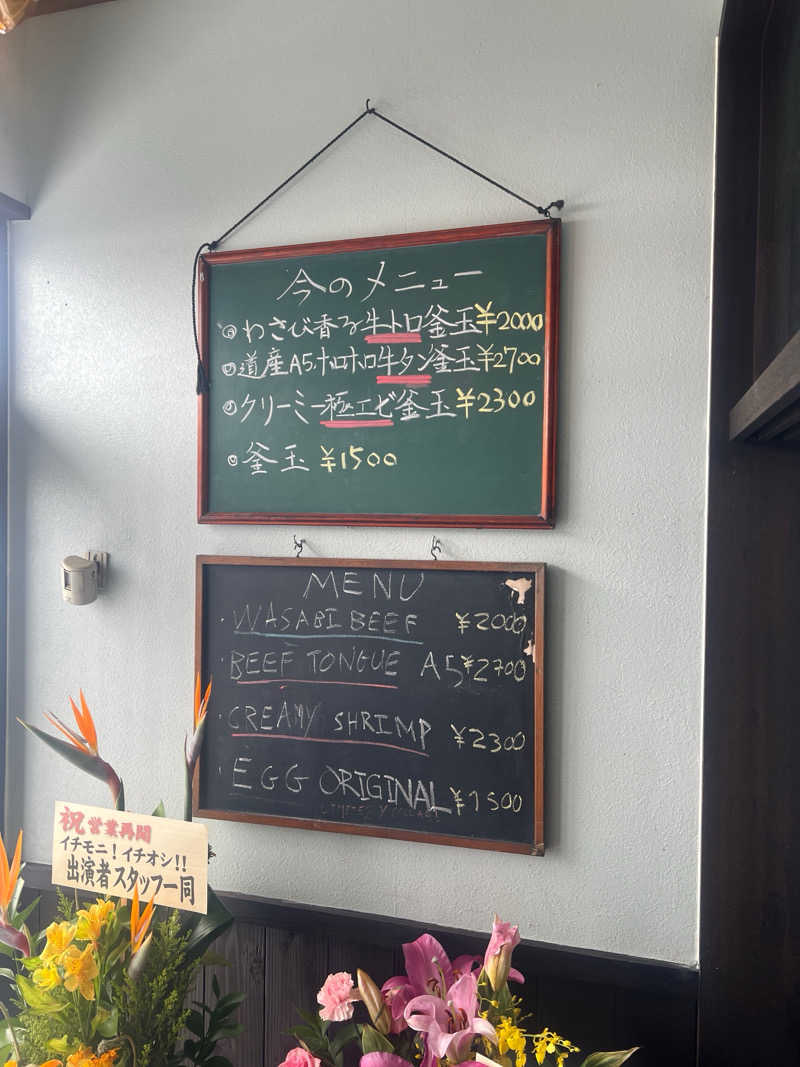 今のメニュー
わさび香る牛トロ釜玉¥2000
道産A5ホロホロ牛タン釜玉¥2700
クリーミー極エビ釜玉¥2300
釜玉 ¥1500
MENU
・WASABI BEEF ¥2000
・BEEF TONGUE A5¥2700
・CREAMY SHRIMP ¥2300
・EGG ORIGINAL ¥1500
祝 営業再開
イチモニ!イチオシ!!
出演者スタッフ一同